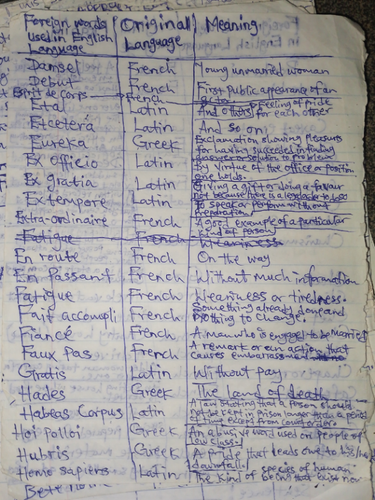 Foreign words Original Meaning
used in English Language
Language
Damsel French Young unmarried woman
Debut French First public appearance of an
actor
Esprit de corps French Feeling of pride
for each other
Et al Latin And others
Etcetera Latin And so on
Eureka Greek Exclamation showing pleasures
for having succeeded in finding
answer or solution to problem
Ex officio Latin By virtue of the office or position
one holds
Ex gratia Latin Giving a gift or doing a favour
not because
Ex tempore Latin To speak or perform without
preparation
Extra-ordinaire French A good example of a particular
kind of person
Fatigue French Weariness
En route French On the way
En Passant French Without much information
Fatigue French Weariness or tiredness.
Fait accompli French Something already done and
nothing to change
Fiancé French A man who is engaged to be married
Faux Pas French A remark or an action that
causes embarrassment
Gratis Latin Without pay
Hades Greek The land of death
Habeas Corpus Latin A law stating that a person should
not be kept in prison longer than a period
of time except from court orders
Hoi polloi Greek An abusive word used on people of
low class
Hubris Greek A pride that leads one to his/her
downfall.
Homo sapiens Latin The kind of species of human
being that exist now
Bete